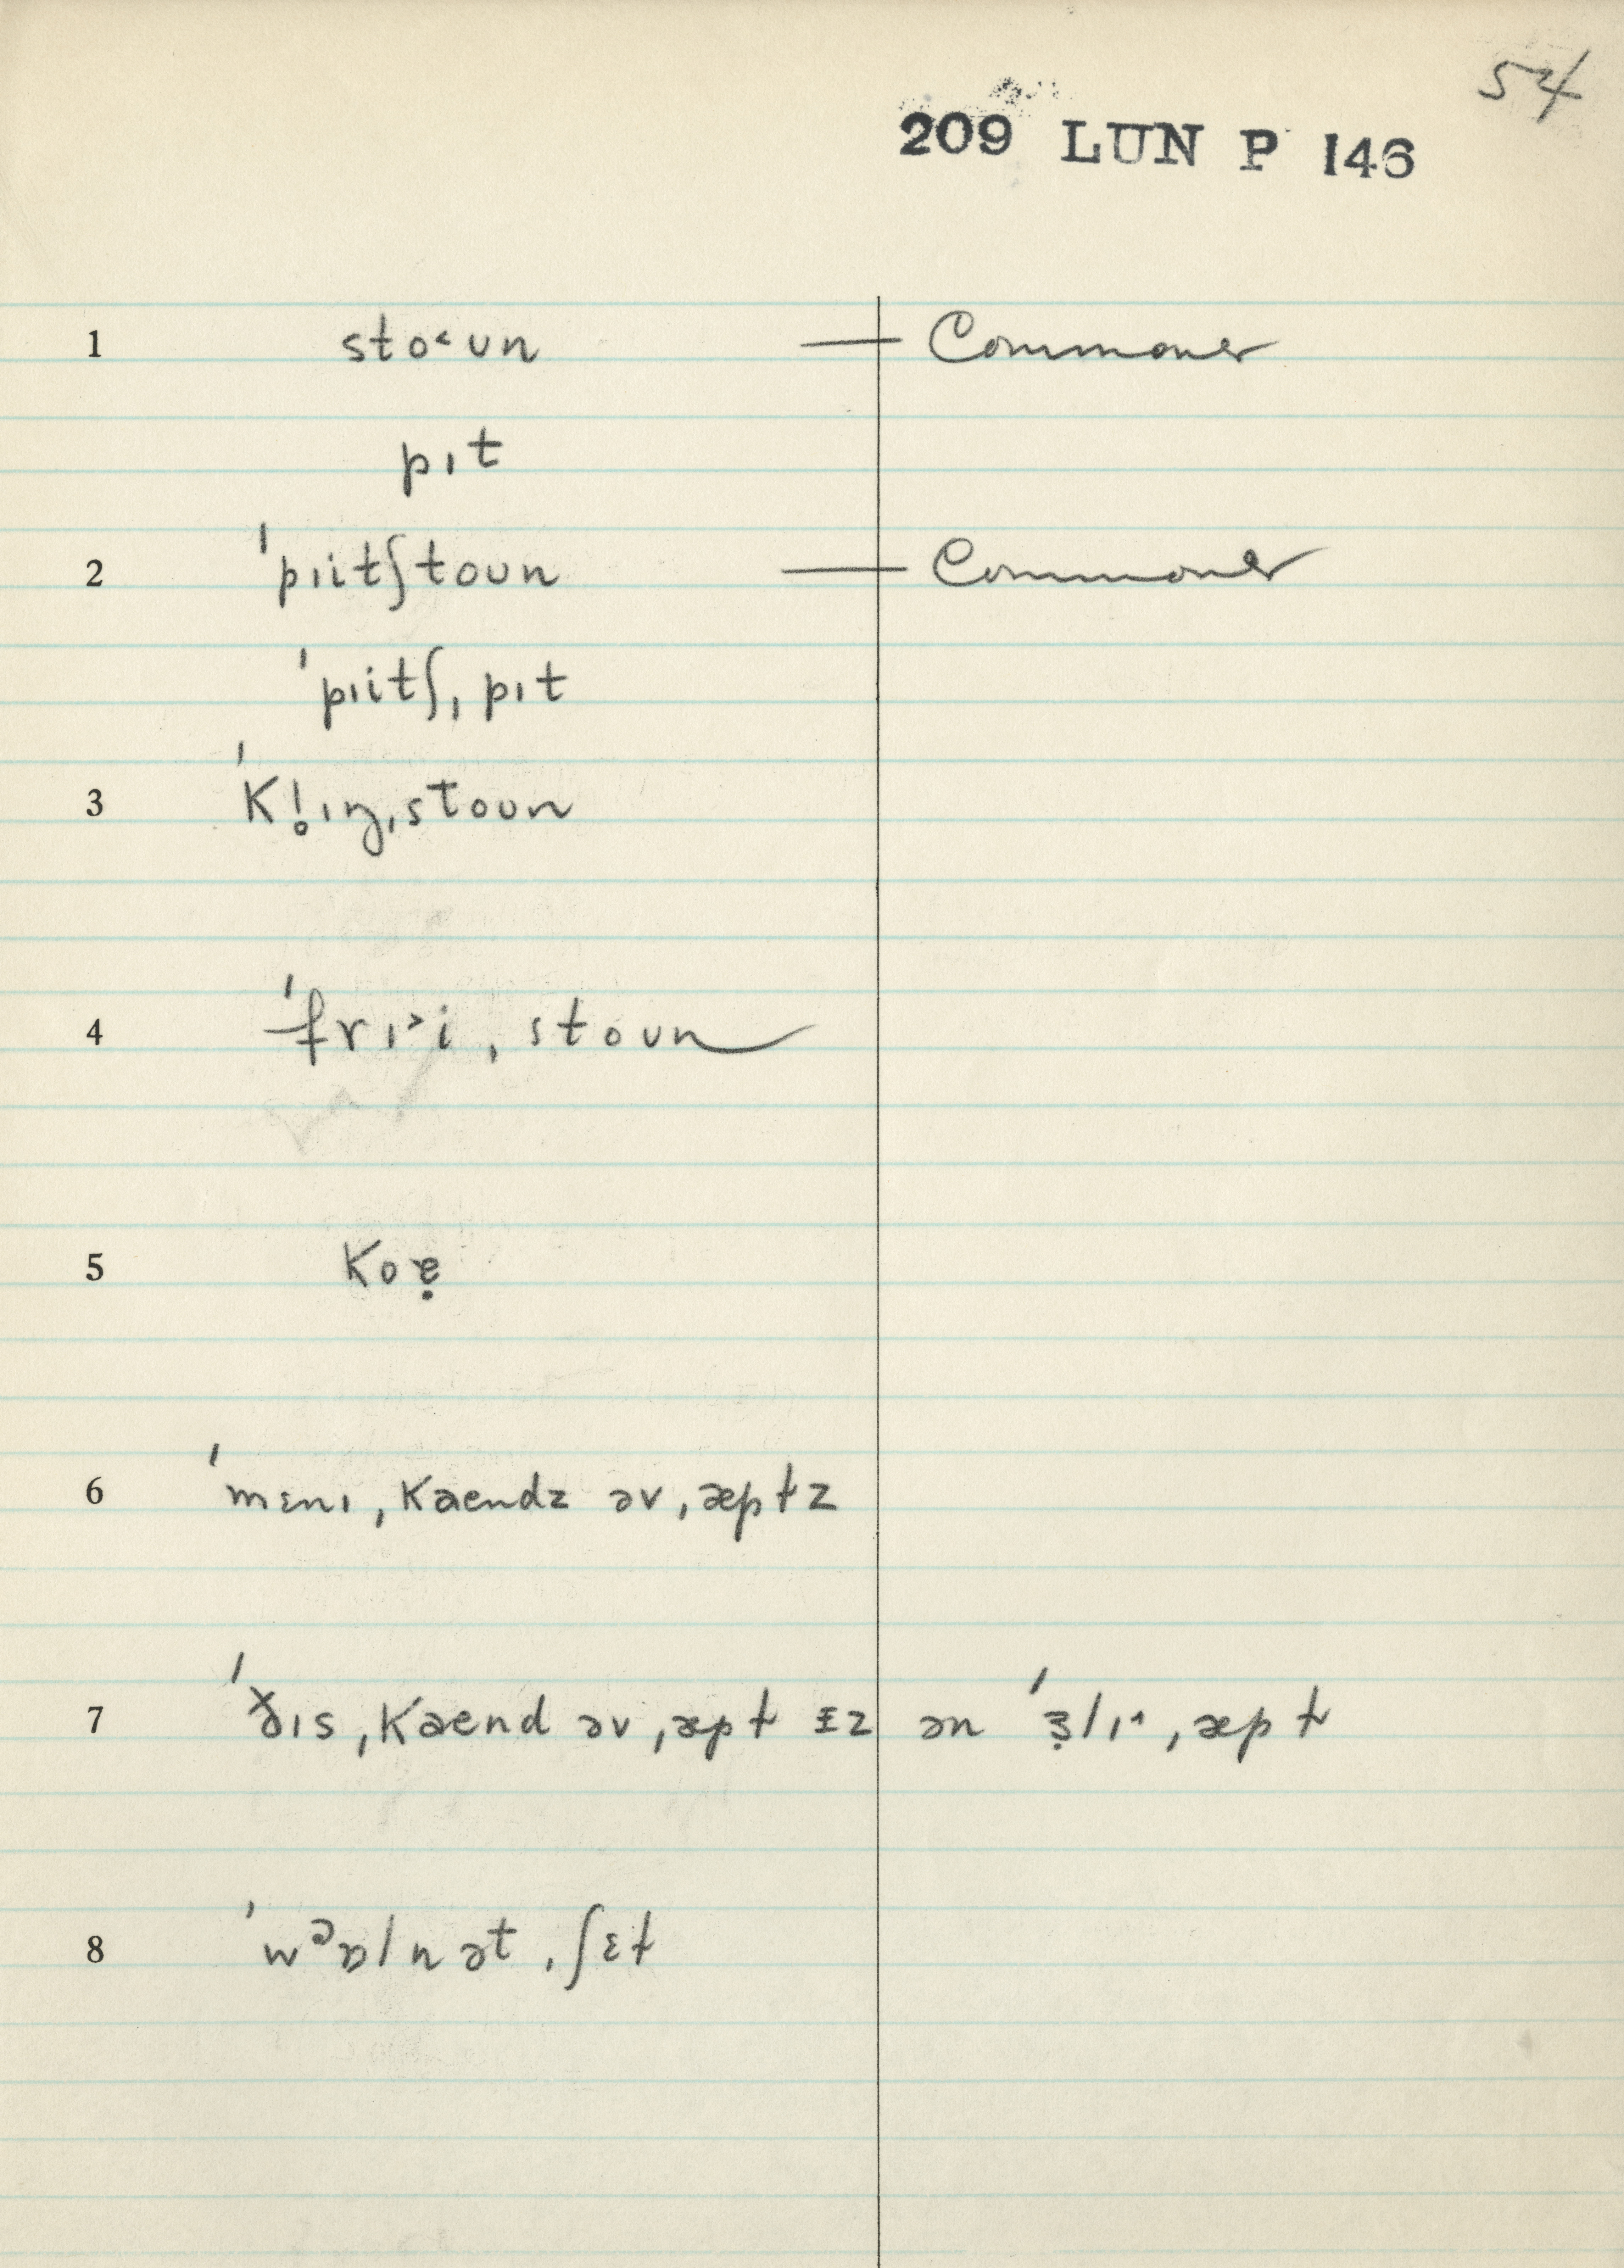 54
209 LUN P 146
1 sto˂ʊn — Commoner
pɩt
2 ˈpɩitʃtoʊn — Commoner
ˈpɩitʃˌpɩt
3 ˈKl̥ɩŋˌstoʊn
4 ˈfrɩ˃iˌstoʊn
5 Koɐ̣
6 ˈmɛnɩˌKaendz əvˌæpɫz
7 ˈðɩsˌKaend əvˌæpɫ ɪz ən ˈɜ̣lɩ˄ˌæpɫ
8 ˈwᵊɒlnətˌʃɛɫ